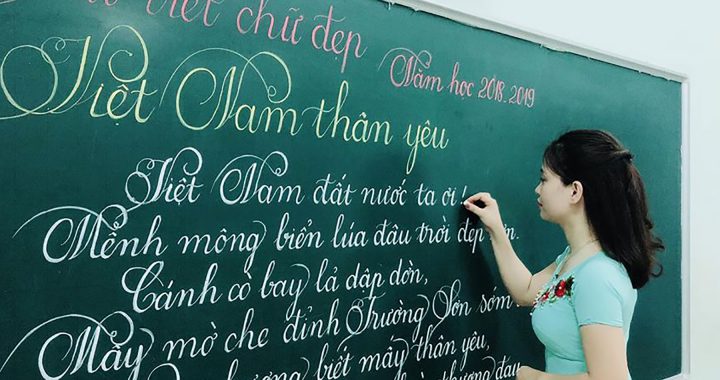 viết chữ đẹp
Năm học 2018-2019
Việt Nam thân yêu
Việt Nam đất nước ta ơi!
Mênh mông biển lúa đâu trời đẹp
Cánh cò bay lả dập dờn,
Mây mờ che đỉnh Trường Sơn sớm
hương biết mấy thân yêu,
thương đau